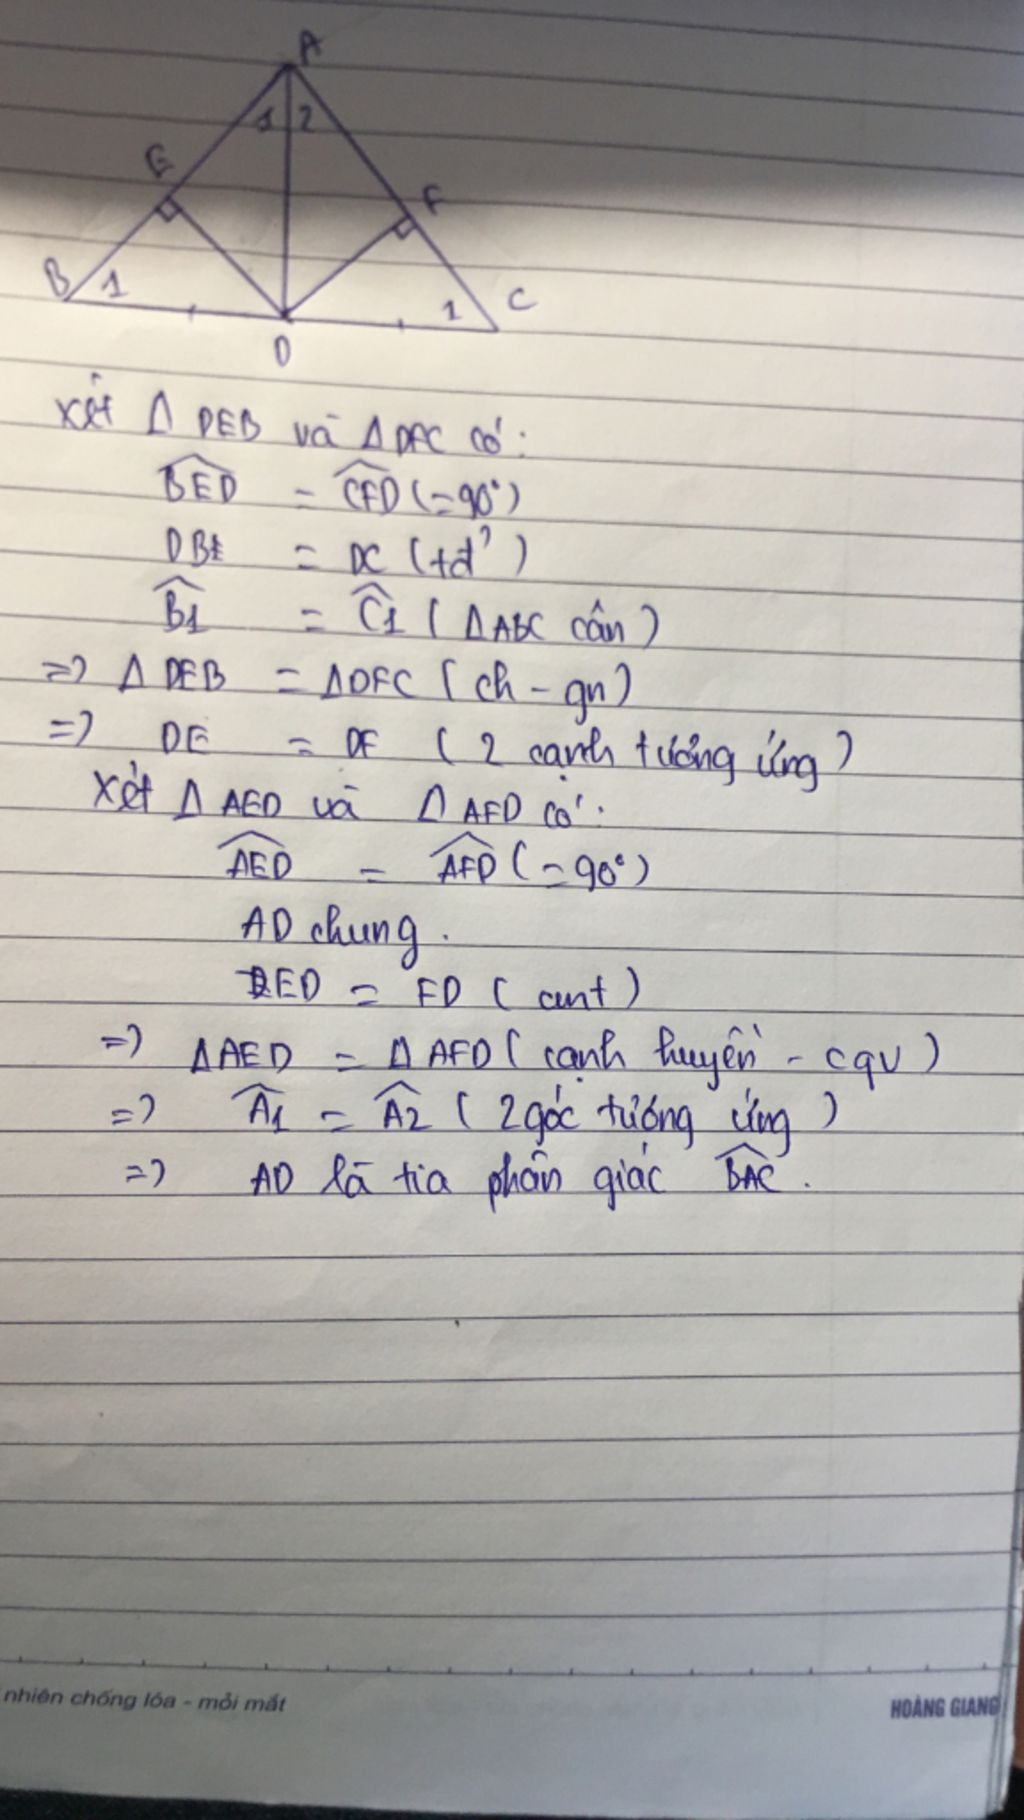 A
1 2
E
F
B 1
1 C
D
Xét Δ DEB và Δ DFC có:
BED = CFD (=90°)
DB = DC (tđ)
B1 = C1 (ΔABC cân)
=> Δ DEB = ΔDFC (ch - gn)
=> DE = DF (2 cạnh tương ứng)
Xét Δ AED và Δ AFD có:
AED = AFD (=90°)
AD chung.
ED = FD (cmt)
=> ΔAED = Δ AFD (cạnh huyền - cgv)
=> A1 = A2 (2 góc tương ứng)
=> AD là tia phân giác BAC.
nhiên chống lóa - mỏi mắt
HOÀNG GIANG